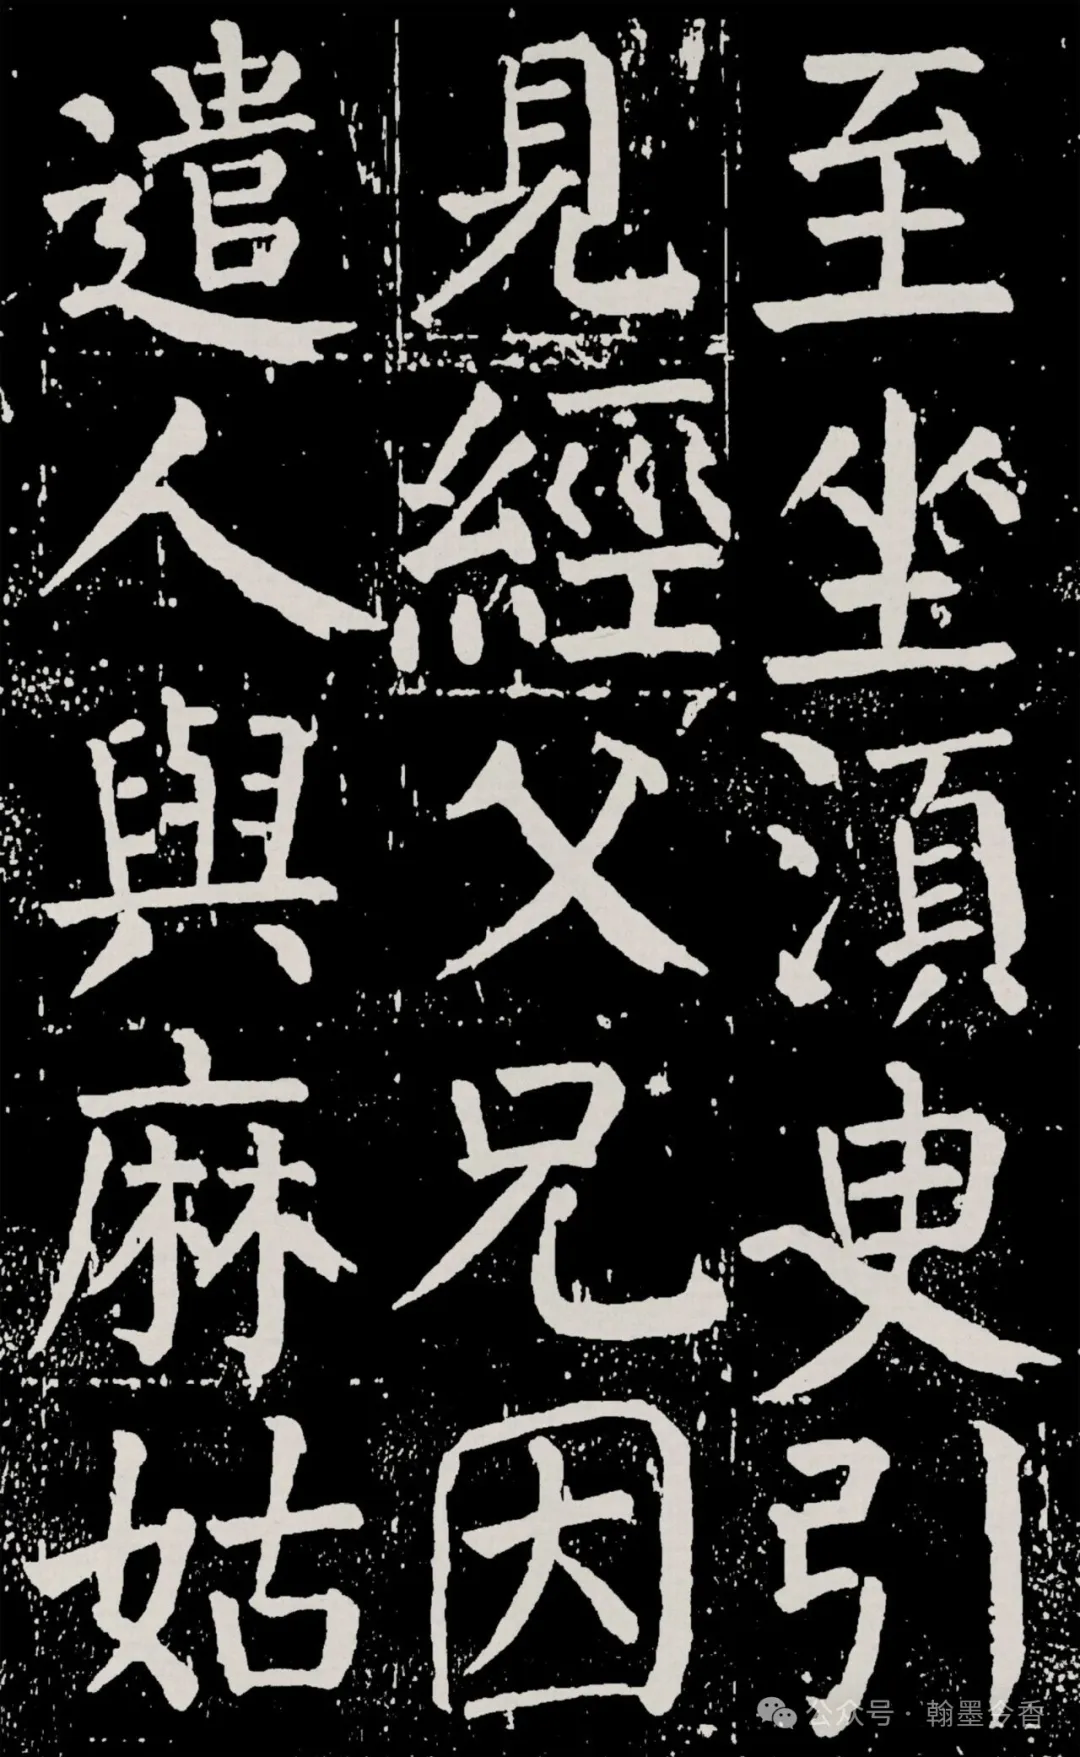 至坐須臾引
見經父兄因
遣人與麻姑
公众号 · 翰墨今香